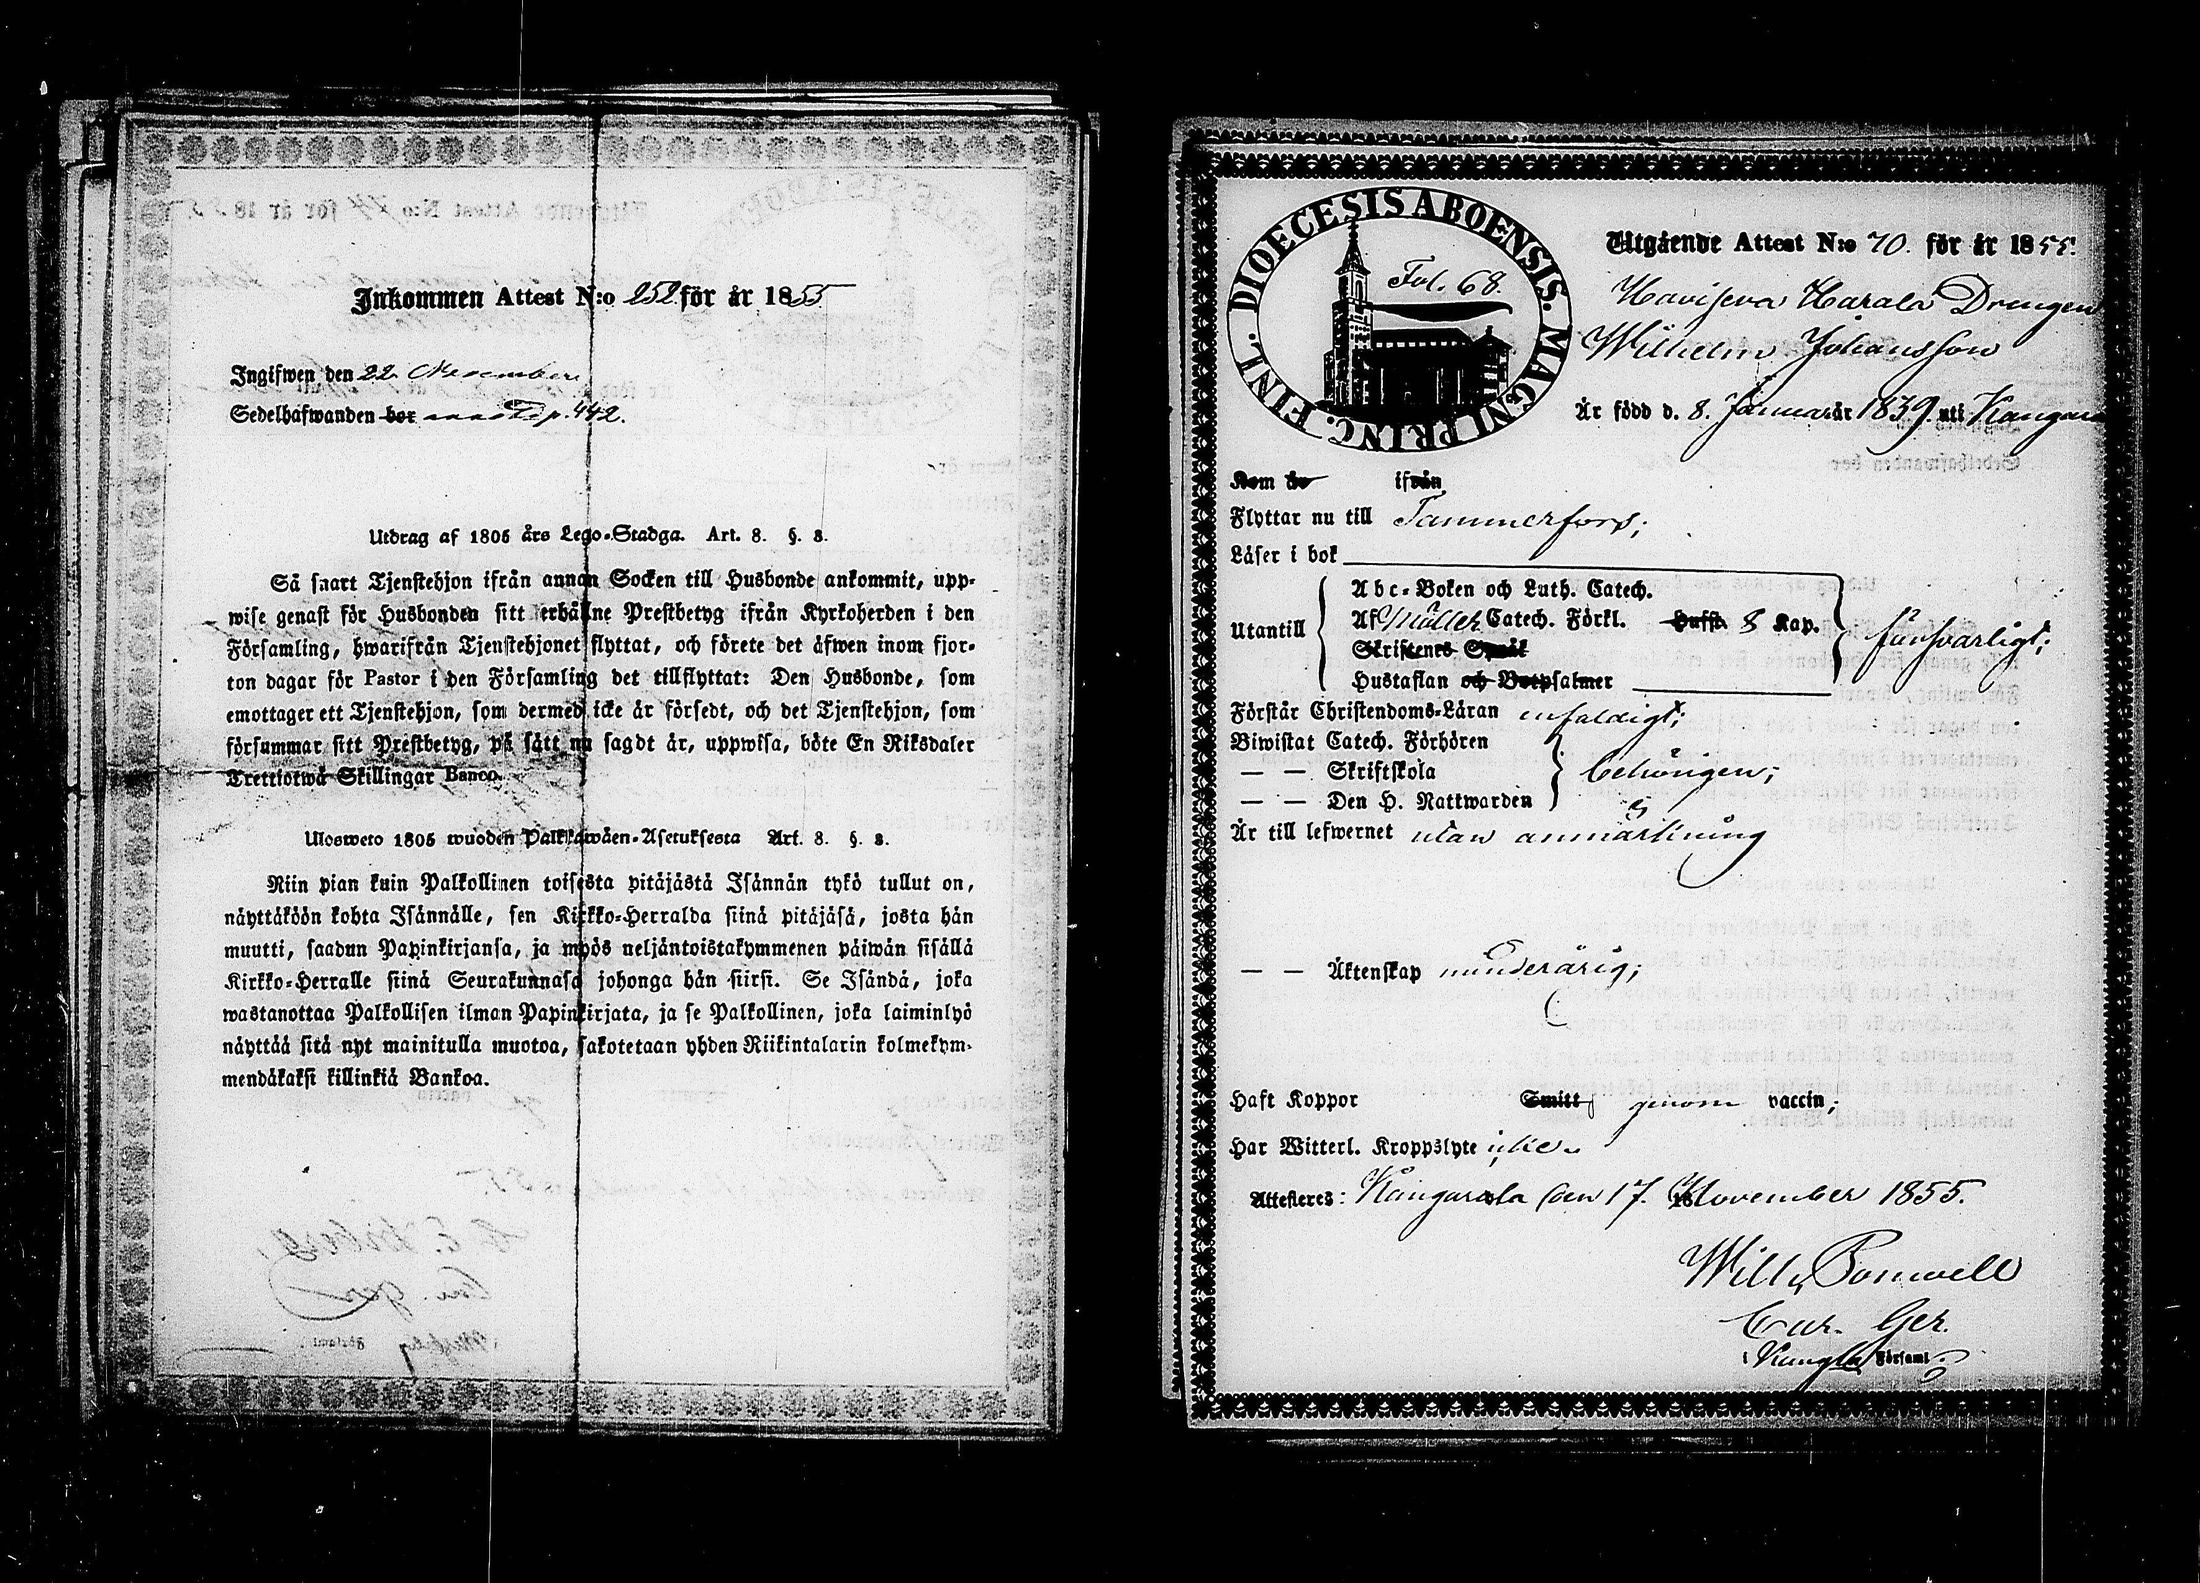 Inkommen Attest N:o 252 för år 1855
Ingifwen den 22 November
Sedelhafwanden bor p. 442.
Utdrag af 1805 års Lego-Stadga. Art. 8. §. 8.
Så snart Tjenstehjon ifrån annan Socken till Husbonde ankommit, upp-
wise genast för Husbonden sitt erhållne Prestbetyg ifrån Kyrkoherden i den
Församling, hwarifrån Tjenstehjonet flyttat, och förete det äfwen inom fjor-
ton dagar för Pastor i den Församling det tillflyttat: Den Husbonde, som
emottager ett Tjenstehjon, som dermed icke är försedt, och det Tjenstehjon, som
försummar sitt Prestbetyg, på sätt nu sagdt är, uppwisa, böte En Riksdaler
Trettiotwå Skillingar Banco.
Ulosweto 1805 wuoden Palkkawäen-Asetuksesta Art. 8. §. 8.
Niin pian kuin Palkollinen toisesta pitäjästä Isännän tykö tullut on,
näyttäköön kohta Isännälle, sen Kirkko-Herralda siinä pitäjäsä, josta hän
muutti, saadun Papinkirjansa, ja myös neljäntoistakymmenen päiwän sisällä
Kirkko-Herralle siinä Seurakunnasa johonga hän siirsi. Se Isändä, joka
wastanottaa Palkollisen ilman Papinkirjata, ja se Palkollinen, joka laiminlyö
näyttää sitä nyt mainitulla muotoa, sakotetaan yhden Riikintalarin kolmekym-
mendäkaksi killinkiä Bankoa.
DIOECESIS ABOENSIS. MAGNI PRINC. FINL.
Fol. 68.
Utgående Attest N:o 70. för år 1855.
Haviseva Harala Drengen
Wilhelm Johansson
Är född d. 8. Januari år 1839. uti Kangasa
Kom år ifrån
Flyttar nu till Tammerfors;
Läser i bok
Abc-Boken och Luth. Catech.
Utantill Af Möller Catech. Förkl. Hufst. 8 Kap. försvarligt;
Skriftenes Språk
Hustaflan och Botpsalmer
Förstår Christendoms-Läran enfaldigt;
Biwistat Catech. Förhören
— — Skriftskola behörigen;
— — Den H. Nattwarden
Är till lefwernet utan anmärkning
— — Äktenskap minderårig;
Haft Koppor Smitt genom vaccin;
Har Witterl. Kroppslyte icke.
Attesteres: Kangasala den 17. 18 November 1855.
Wilh. Bonwell
Cur. Ger.
i Kangla Församl.